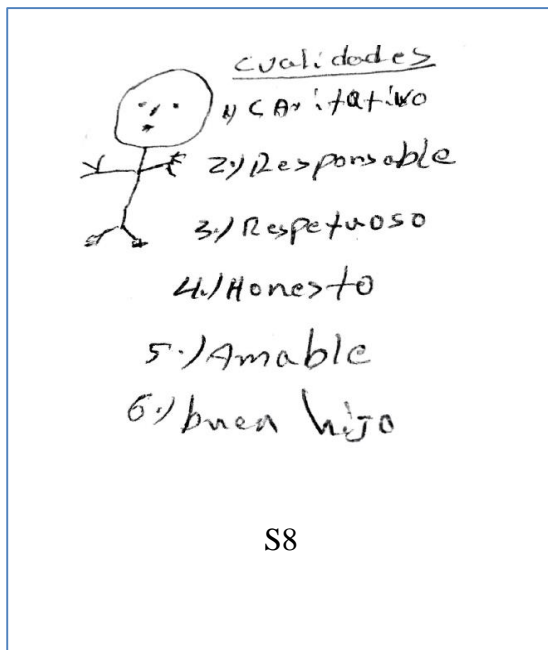 cualidades
1) CAritativo
2.) Responsable
3.) Respetuoso
4.) Honesto
5.) Amable
6.) buen hijo
S8